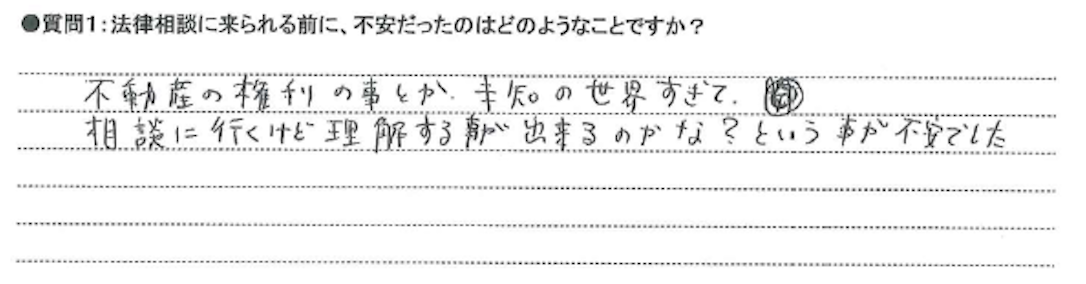 ●質問1:法律相談に来られる前に、不安だったのはどのようなことですか?
不動産の権利の事とか、未知の世界すぎて、
相談に行くけど理解する事が出来るのかな?という事が不安でした